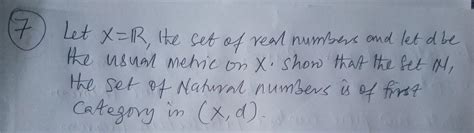 7 Let X=ℝ, the set of real numbers and let d be
the usual metric on X. show that the set ℕ,
the set of Natural numbers is of first
Category in (X,d).